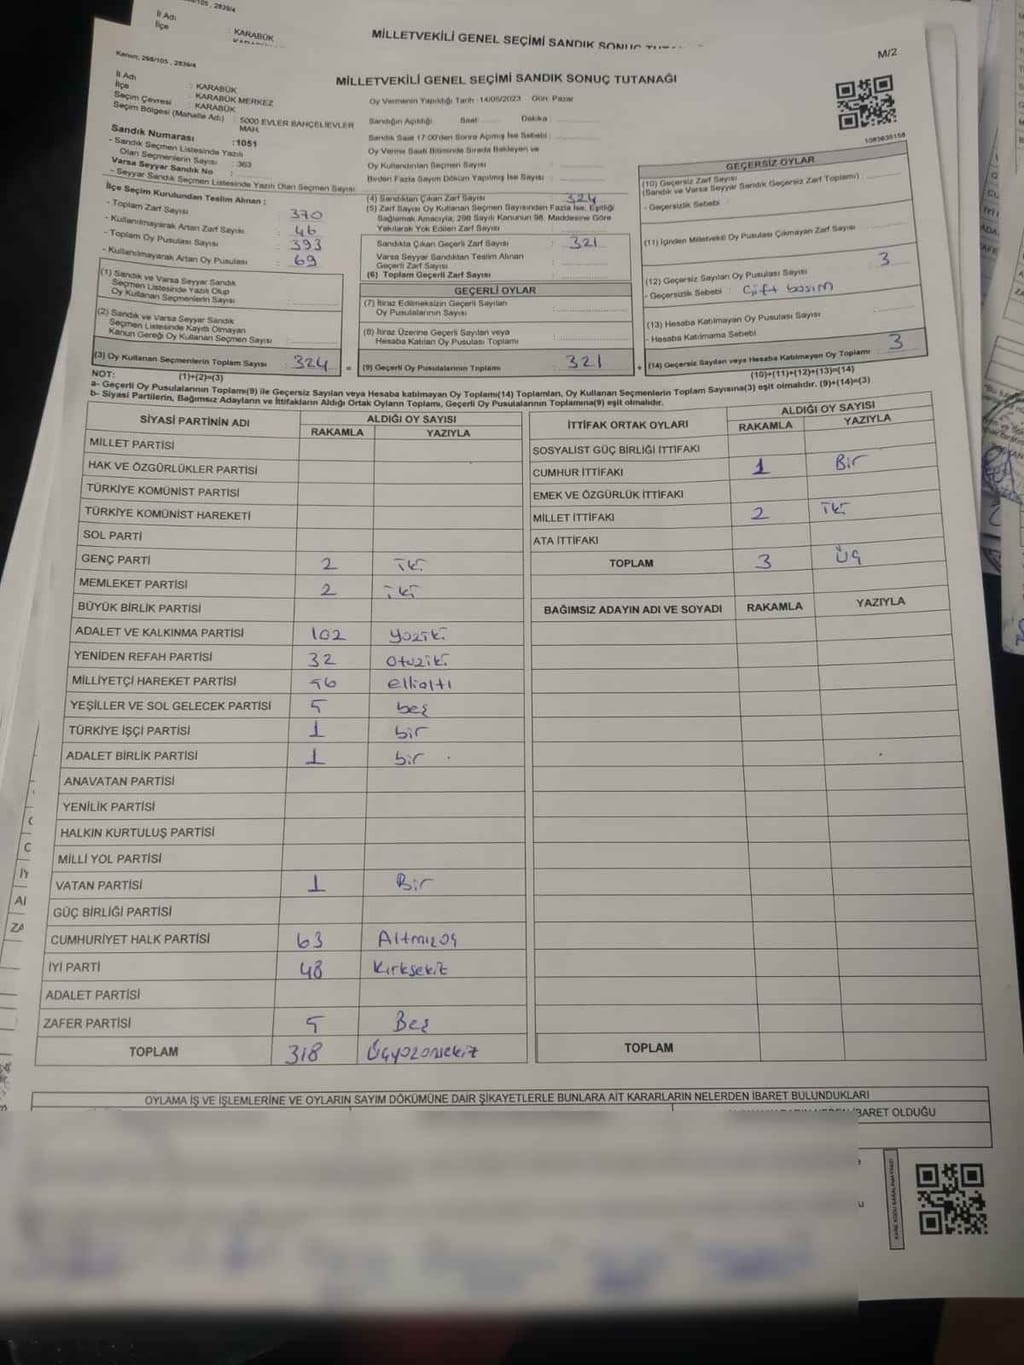 İl Adı
İlçe
KARABÜK
MİLLETVEKİLİ GENEL SEÇİMİ SANDIK
Kanun: 298/105 , 2839/4
MİLLETVEKİLİ GENEL SEÇİMİ SANDIK SONUÇ TUTANAĞI
M/2
İl Adı : KARABÜK
İlçe : KARABÜK MERKEZ
Seçim Çevresi : KARABÜK
Seçim Bölgesi (Mahalle Adı) : 5000 EVLER BAHÇELİEVLER MAH.
Sandık Numarası :1051
- Sandık Seçmen Listesinde Yazılı
Olan Seçmenlerin Sayısı : 363
Varsa Seyyar Sandık No :
- Seyyar Sandık Seçmen Listesinde Yazılı Olan Seçmen Sayısı:
Oy Vermenin Yapıldığı Tarih :14/05/2023 Gün: Pazar
Sandığın Açıldığı Saat Dakika
Sandık Saat 17:00'den Sonra Açılmış İse Sebebi :
Oy Verme Saati Bitiminde Sırada Bekleyen ve
Oy Kullandırılan Seçmen Sayısı
Birden Fazla Sayım Döküm Yapılmış İse Sayısı :
1083635158
İlçe Seçim Kurulundan Teslim Alınan :
- Toplam Zarf Sayısı : 370
- Kullanılmayarak Artan Zarf Sayısı : 46
- Toplam Oy Pusulası Sayısı : 393
- Kullanılmayarak Artan Oy Pusulası : 69
(1) Sandık ve Varsa Seyyar Sandık
Seçmen Listesinde Yazılı Olup
Oy Kullanan Seçmenlerin Sayısı :
(2) Sandık ve Varsa Seyyar Sandık
Seçmen Listesinde Kayıtlı Olmayan
Kanun Gereği Oy Kullanan Seçmen Sayısı :
(3) Oy Kullanan Seçmenlerin Toplam Sayısı : 324
(1)+(2)=(3)
(4) Sandıktan Çıkan Zarf Sayısı : 324
(5) Zarf Sayısı Oy Kullanan Seçmen Sayısından Fazla İse, Eşitliği
Sağlamak Amacıyla, 298 Sayılı Kanunun 98. Maddesine Göre
Yakılarak Yok Edilen Zarf Sayısı :
Sandıkta Çıkan Geçerli Zarf Sayısı : 321
Varsa Seyyar Sandıktan Teslim Alınan
Geçerli Zarf Sayısı :
(6) Toplam Geçerli Zarf Sayısı :
GEÇERLİ OYLAR
(7) İtiraz Edilmeksizin Geçerli Sayılan
Oy Pusulalarının Sayısı :
(8) İtiraz Üzerine Geçerli Sayılan veya
Hesaba Katılan Oy Pusulası Toplamı :
= (9) Geçerli Oy Pusulalarının Toplamı : 321
GEÇERSİZ OYLAR
(10) Geçersiz Zarf Sayısı
(Sandık ve Varsa Seyyar Sandık Geçersiz Zarf Toplamı) :
- Geçersizlik Sebebi :
(11) İçinden Milletvekili Oy Pusulası Çıkmayan Zarf Sayısı :
(12) Geçersiz Sayılan Oy Pusulası Sayısı : 3
- Geçersizlik Sebebi : Çift basım
(13) Hesaba Katılmayan Oy Pusulası Sayısı :
- Hesaba Katılmama Sebebi :
+ (14) Geçersiz Sayılan veya Hesaba Katılmayan Oy Toplamı : 3
(10)+(11)+(12)+(13)=(14)
NOT:
a- Geçerli Oy Pusulalarının Toplamı(9) ile Geçersiz Sayılan veya Hesaba katılmayan Oy Toplamı(14) Toplamları, Oy Kullanan Seçmenlerin Toplam Sayısına(3) eşit olmalıdır. (9)+(14)=(3)
b- Siyasi Partilerin, Bağımsız Adayların ve İttifakların Aldığı Ortak Oyların Toplamı, Geçerli Oy Pusulalarının Toplamına(9) eşit olmalıdır.
SİYASİ PARTİNİN ADI ALDIĞI OY SAYISI
RAKAMLA YAZIYLA
MİLLET PARTİSİ
HAK VE ÖZGÜRLÜKLER PARTİSİ
TÜRKİYE KOMÜNİST PARTİSİ
TÜRKİYE KOMÜNİST HAREKETİ
SOL PARTİ
GENÇ PARTİ 2 iki
MEMLEKET PARTİSİ 2 iki
BÜYÜK BİRLİK PARTİSİ
ADALET VE KALKINMA PARTİSİ 102 yüziki
YENİDEN REFAH PARTİSİ 32 otuziki
MİLLİYETÇİ HAREKET PARTİSİ 56 ellialtı
YEŞİLLER VE SOL GELECEK PARTİSİ 5 beş
TÜRKİYE İŞÇİ PARTİSİ 1 bir
ADALET BİRLİK PARTİSİ 1 bir
ANAVATAN PARTİSİ
YENİLİK PARTİSİ
HALKIN KURTULUŞ PARTİSİ
MİLLİ YOL PARTİSİ
VATAN PARTİSİ 1 Bir
GÜÇ BİRLİĞİ PARTİSİ
CUMHURİYET HALK PARTİSİ 63 Altmışüç
İYİ PARTİ 48 Kırksekiz
ADALET PARTİSİ
ZAFER PARTİSİ 5 Beş
TOPLAM 318 Üçyüzonsekiz
İTTİFAK ORTAK OYLARI ALDIĞI OY SAYISI
RAKAMLA YAZIYLA
SOSYALİST GÜÇ BİRLİĞİ İTTİFAKI
CUMHUR İTTİFAKI 1 Bir
EMEK VE ÖZGÜRLÜK İTTİFAKI
MİLLET İTTİFAKI 2 İki
ATA İTTİFAKI
TOPLAM 3 Üç
BAĞIMSIZ ADAYIN ADI VE SOYADI RAKAMLA YAZIYLA
TOPLAM
OYLAMA İŞ VE İŞLEMLERİNE VE OYLARIN SAYIM DÖKÜMÜNE DAİR ŞİKAYETLERLE BUNLARA AİT KARARLARIN NELERDEN İBARET BULUNDUKLARI
İBARET OLDUĞU